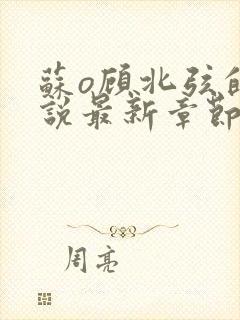 蘇o顾北弦的
說最新章節
周亮